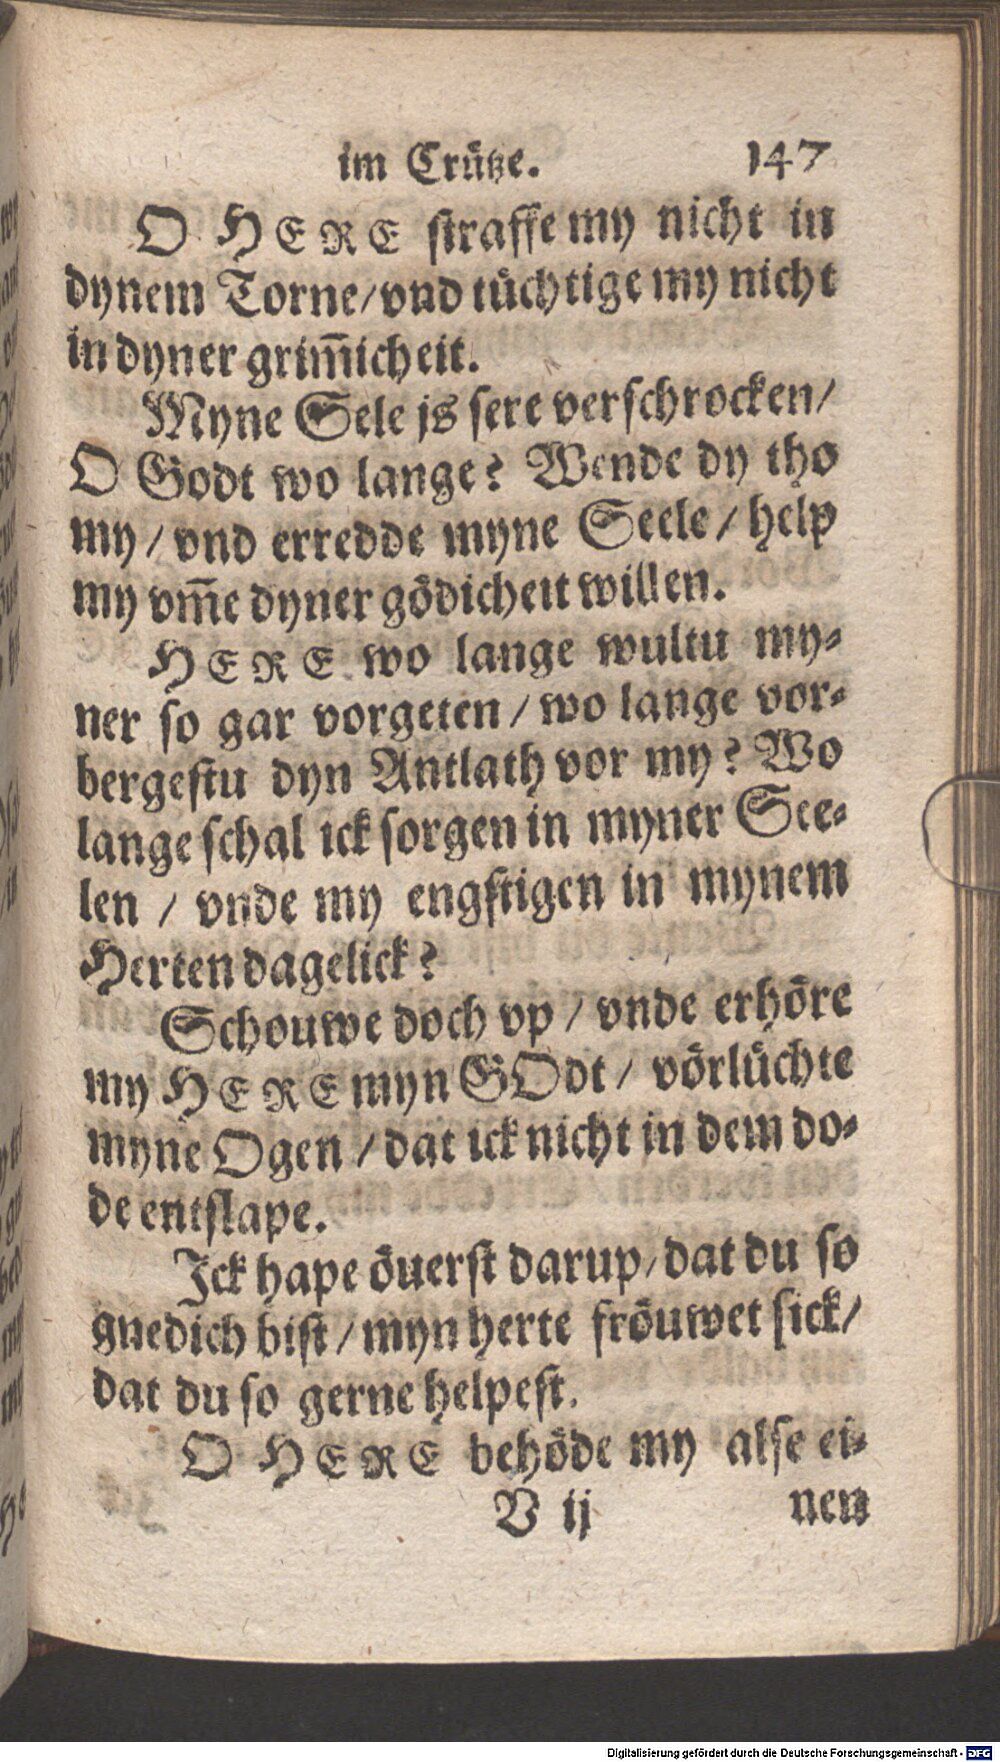 im Crütze. 147
O HERE straffe my nicht in
dynem Torne/vnd tüchtige my nicht
in dyner grim̄icheit.
Myne Sele js sere verschrocken/
O Godt wo lange? Wende dy tho
my/vnd erredde myne Seele/help
my vm̄e dyner gödicheit willen.
HERE wo lange wultu my-
ner so gar vorgeten/wo lange vor-
bergestu dyn Antlath vor my? Wo
lange schal ick sorgen in myner See-
len / vnde my engstigen in mynem
Herten dagelick?
Schouwe doch vp / vnde erhöre
my HERE myn GOdt / vörlüchte
myne Ogen / dat ick nicht in dem do-
de entslape.
Jck hape öuerst darup/dat du so
gnedich bist/myn herte fröuwet sick/
dat du so gerne helpest.
O HERE behöde my alse ei-
V ij nen
Digitalisierung gefördert durch die Deutsche Forschungsgemeinschaft - DFG